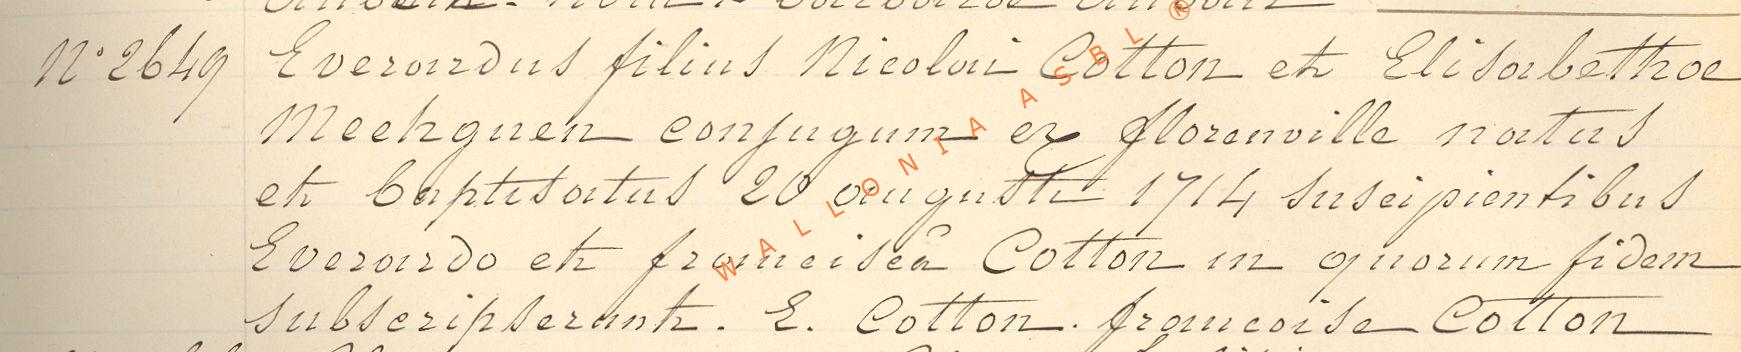 N° 2649 Everardus filius Nicolai Cotton et Elisabethae
Mechguen conjugum ex florenville natus
et baptisatus 20 augusti 1714 suscipientibus
Everardo et franciscâ Cotton in quorum fidem
subscripserunt. E. Cotton. francoise Cotton
WALLONIA ASBL ®